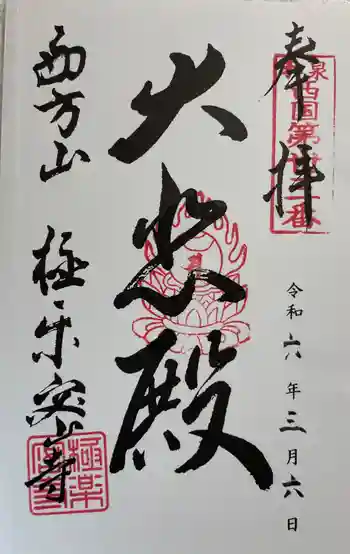 奉拝
西国第
番
令和六年三月六日
大悲殿
西方山
極楽寺
極楽